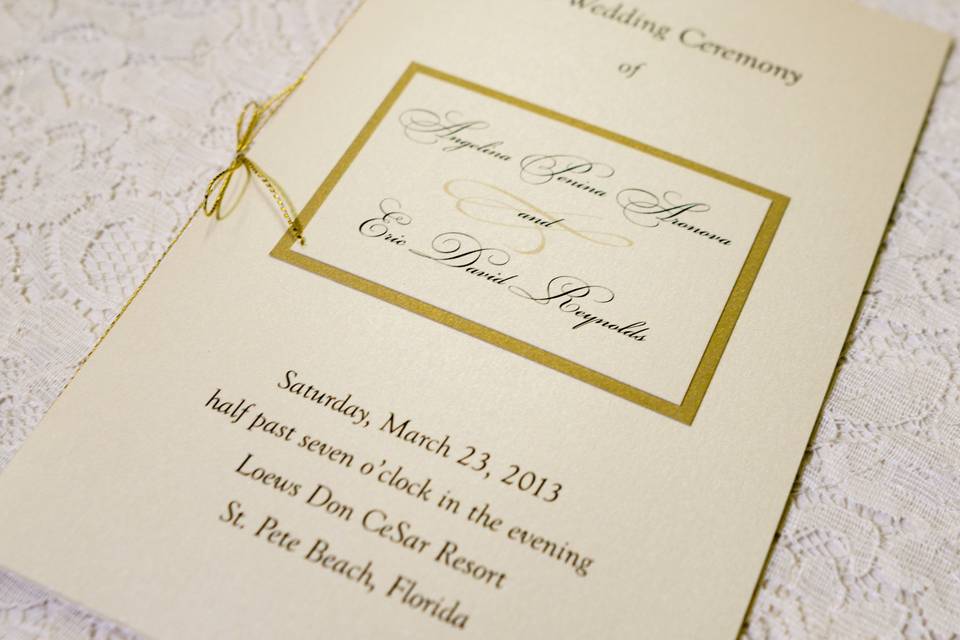 Wedding Ceremony
of
Angelina Penina Aronova
and
Eric David Reynolds
Saturday, March 23, 2013
half past seven o'clock in the evening
Loews Don CeSar Resort
St. Pete Beach, Florida